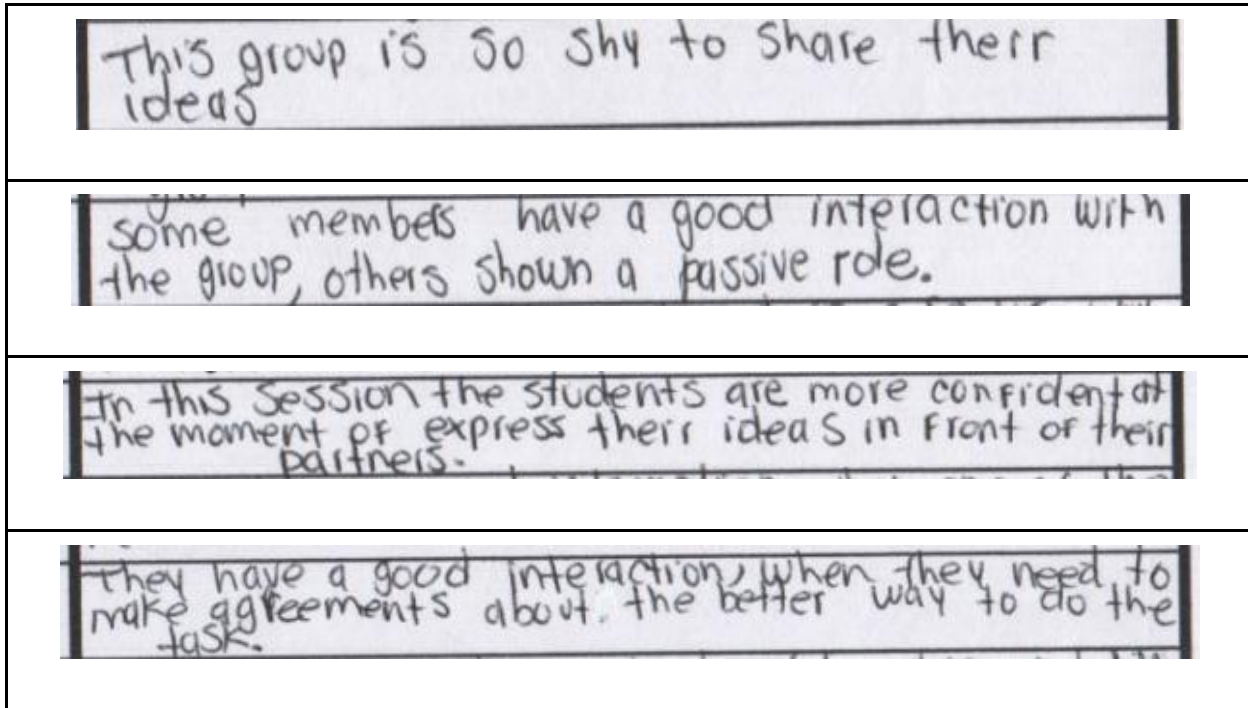 This group is so shy to share their
ideas
some members have a good interaction with
the group, others shown a passive role.
In this session the students are more confident at
the moment of express their ideas in front of their
partners.
They have a good interaction, when they need to
make agreements about. the better way to do the
task.